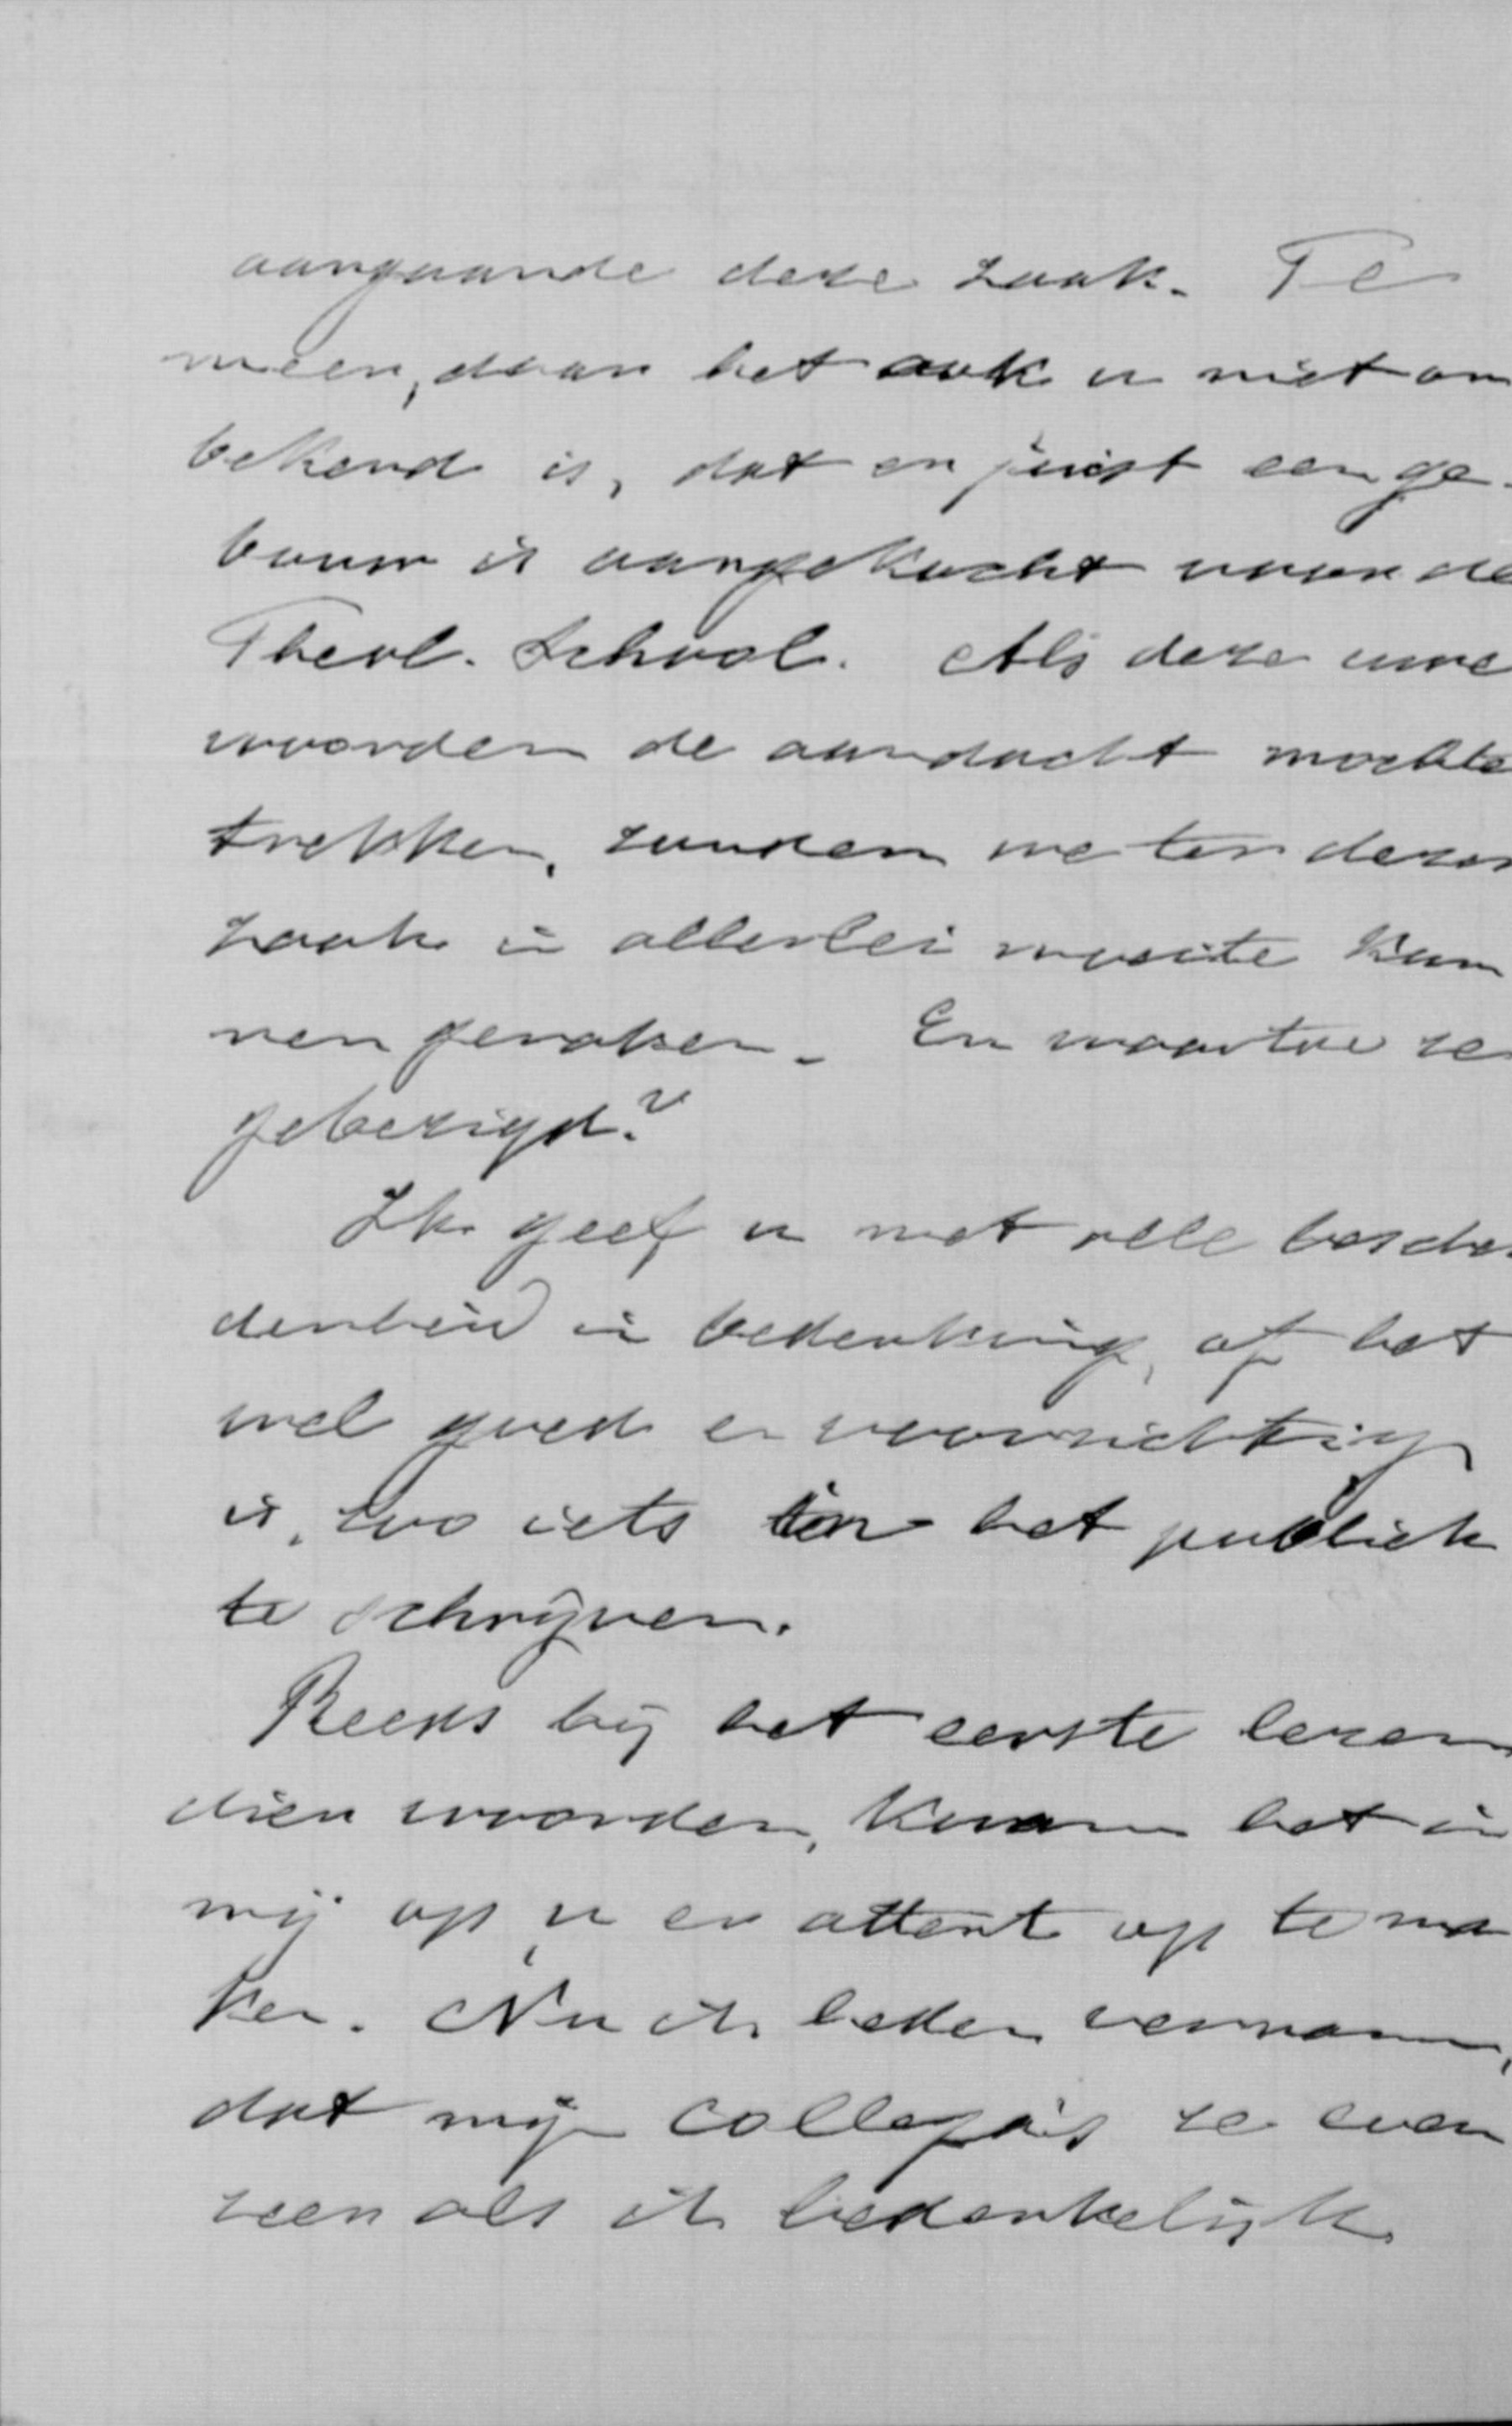 aangaande deze zaak. Te
meer, daar het ook u niet on
bekend is, dat er juist een ge-
bouw is aangekocht voor de
Theol. School. Als deze uwe
woorden de aandacht mochte
trekken, zouden we ten dezer
zaak in allerlei moeite kun
nen geraken. En waartoe ze
gebezigd?
Ik geef u met alle besche
denheid in bedenking, of het
wel goed en voorzichtig
is, zoo iets in het publiek
te schrijven.
Reeds bij het eerste lezen
dier woorden, kwam het in
mij op, u er attent op te ma
ken. Nu ik heden vernam,
dat mijn collega's ze even
zeer als ik bedenkelijk